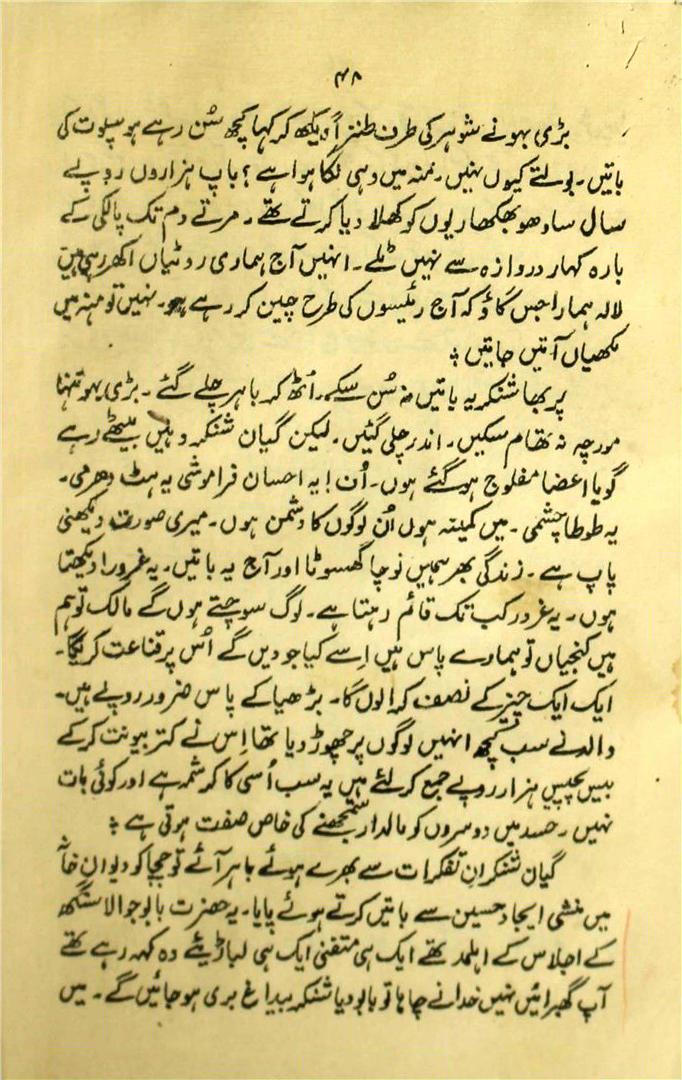 ۴۸
بڑی بہو نے شوہر کی طرف طنزاً دیکھ کر کہا کچھ سُن رہے ہو سپوت کی
باتیں۔ بولتے کیوں نہیں۔ منہ میں دہی لگا ہوا ہے؟ باپ ہزاروں روپے
سال سادھو بھکھاریوں کو کھلا دیا کرتے تھے۔ مرتے دم تک پالکی کے
بارہ کہار دروازہ سے نہیں ٹلے۔ انہیں آج ہماری روٹیاں اکھر رہی ہیں
لالہ ہمارا جس گاؤ کہ آج رئیسوں کی طرح چین کر رہے ہو۔ نہیں تو منہ میں
مکھیاں آتیں جاتیں ؞
پربھا شنکر یہ باتیں نہ سُن سکے۔ اُٹھ کر باہر چلے گئے۔ بڑی بہو تنہا
مورچہ نہ تھام سکیں۔ اندر چلی گئیں۔ لیکن گیان شنکر وہیں بیٹھے رہے
گویا اعضا مفلوج ہو گئے ہوں۔ اُف! یہ احسان فراموشی یہ ہٹ دھرمی۔
یہ طوطا چشمی۔ میں کمینہ ہوں اُن لوگوں کا دشمن ہوں۔ میری صورت دیکھنی
پاپ ہے۔ زندگی بھر ہمیں نوچا گھسوٹا اور آج یہ باتیں۔ یہ غرور! دیکھتا
ہوں۔ یہ غرور کب تک قائم رہتا ہے۔ لوگ سوچتے ہوں گے مالک تو ہم
ہیں کنجیاں تو ہمارے پاس ہیں اِسے کیا جو دیں گے اُس پر قناعت کریگا۔
ایک ایک چیز کے نصف کرا لوں گا۔ بڑھیا کے پاس ضرور روپے ہیں۔
والد نے سب کچھ انہیں لوگوں پر چھوڑ دیا تھا اِس نے کتر بیونت کر کے
بیس پچیس ہزار روپے جمع کر لئے ہیں یہ سب اُسی کا کرشمہ ہے اور کوئی بات
نہیں۔ حسد میں دوسروں کو مالدار سمجھنے کی خاص صفت ہوتی ہے ؞
گیان شنکر ان تفکرات سے بھرے ہوئے باہر آئے تو چچا کو دیوان خانہ
میں منشی ایجاد حسین سے باتیں کرتے ہوئے پایا۔ یہ حضرت بابو جوالا سنگھ
کے اجلاس کے اہلمد تھے ایک ہی متفنی ایک ہی لباڑیئے وہ کہہ رہے تھے
آپ گھبرائیں نہیں خدا نے چاہا تو بابو دیا شنکر بیداغ بری ہو جائیں گے۔ میں